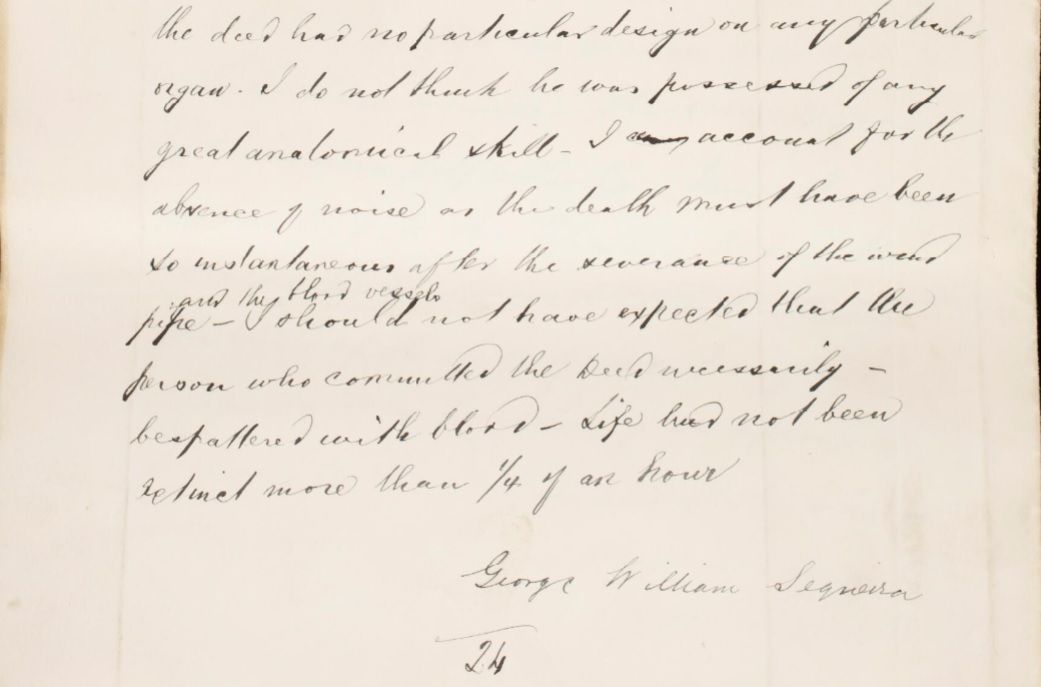 the deed had no particular design on any particular
organ. I do not think he was possessed of any
great anatomical skill – I account for the
absence of noise as the death must have been
so instantaneous after the severance of the wind
and the blood vessels
pipe – I should not have expected that the
person who committed the Deed necessarily –
bespattered with blood – Life had not been
extinct more than 1/4 of an hour
George William Sequeira
24